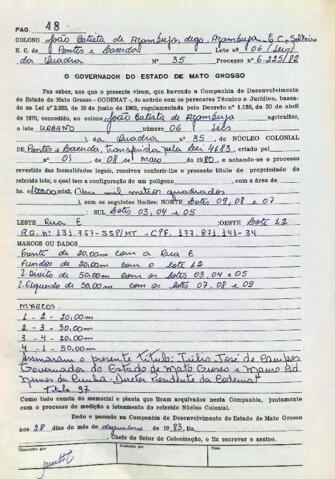 PAG. 48
COLONO João Batista de Azambuja, digo, Azambuja - B.C. Solteiro
N. C. de Pontes e Lacerda Lote nº 06 (seis)
da Quadra Nº 35 Processo nº 6-225/82
O GOVERNADOR DO ESTADO DE MATO GROSSO
Faz saber, aos que o presente virem, que havendo a Companhia de Desenvolvimento
do Estado de Mato Grosso - CODEMAT -, de acordo com os pareceres Técnico e Jurídico, basea-
da na Lei nº 2.933, de 19 de junho de 1969, regulamentado pelo Decreto nº 1.138, de 20 de abril
de 1970, concedido ao colono João Batista de Azambuja agricultor,
o lote URBANO número 06 / seis
da Quadra nº 35, do NÚCLEO COLONIAL
de Pontes e Lacerda, transferida pela Lei 4.683, criado pelo
nº 01 de 08 de maio de 1980, e achando-se o processo
revestido das formalidades legais, resolveu conferir-lhe o presente título de propriedade
do referido lote, o qual tem a configuração de um polígono com a área de
ha. 1.000,00 m2, (Um mil metros quadrados
), com os seguintes limites: NORTE lotes 09, 08 e 07
SUL lotes 03, 04 e 05
LESTE Rua E OESTE lote 12
R.G. nº 131.757-SSP/MT. - CPF. 177.871.141-34
MARCOS OU DADOS
Frente de 20,00m com a Rua E
Fundos de 20,00m com o lote 12
L. Direito de 50,00m com os lotes 03, 04 e 05
L. Esquerdo de 50,00m com os lotes 07, 08 e 09
MARCOS:
1 - 2 - 20,00m
2 - 3 - 50,00m
3 - 4 - 20,00m
4 - 1 - 50,00m
Assinaram o presente título: Júlio José de Campos
Governador do Estado de Mato Grosso e Mauro Cid
Nunes da Cunha - Diretor Presidente da Codemat
Título 27
Como tudo consta do memorial e planta que ficam arquivados nesta Companhia, juntamente
com o processo de medição e loteamento do referido Núcleo Colonial.
Dado e passado na Companhia de Desenvolvimento do Estado de Mato Grosso
aos 28 dias do mês de dezembro de 1983, Eu,
, Chefe do Setor de Colonização, o fiz escrever e assino.
Transcrito por
Conferido por
Visto